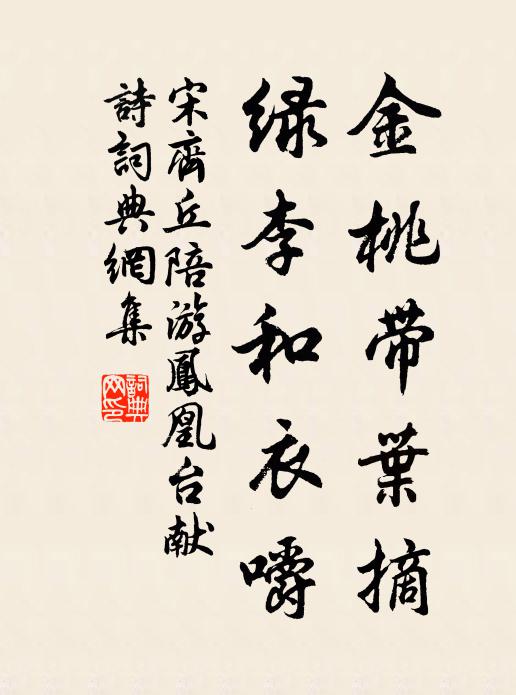 金桃帶葉摘
緑李和衣嚼
宋齊丘陪游鳳凰台献
詩詞典網集
詞典网印